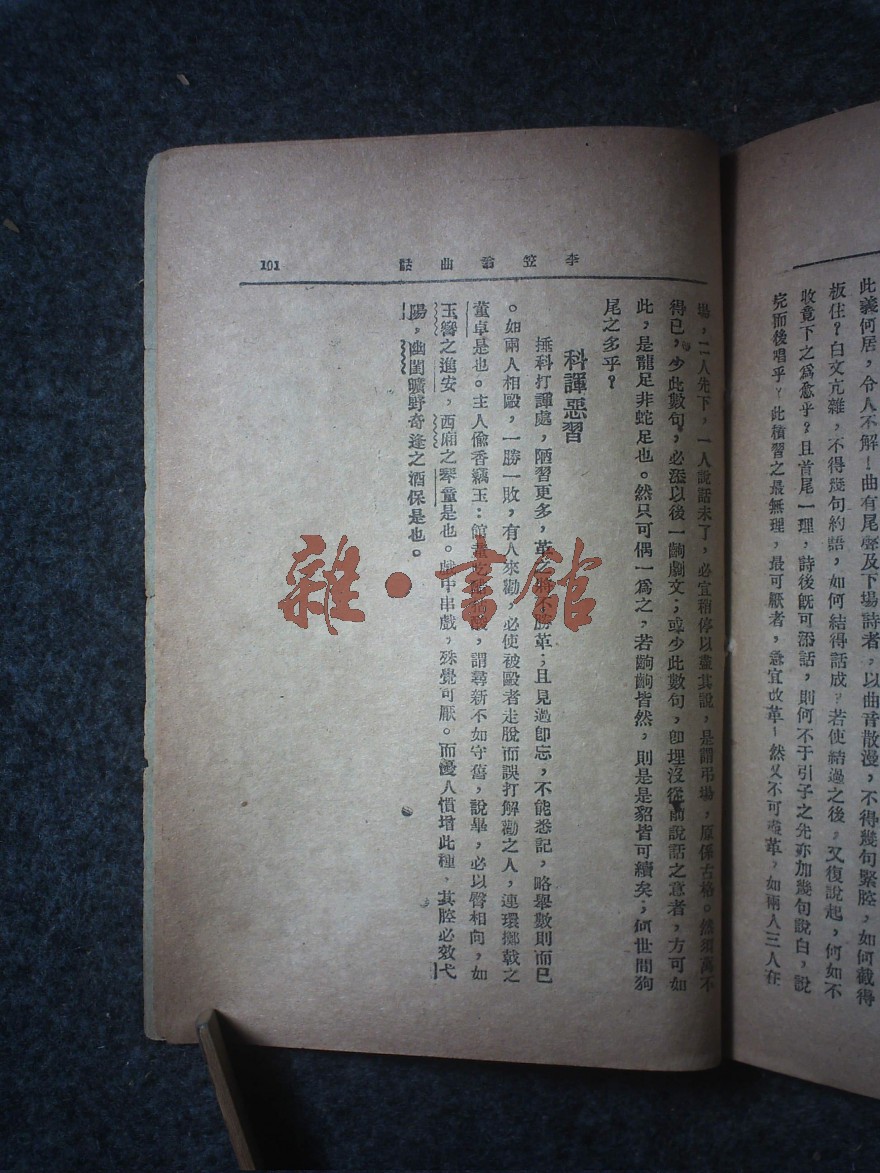 此義何居，令人不解！曲有尾聲及下場詩者，以曲音散漫，不得幾句緊腔，如何截得
板住？白文亢雜，不得幾句約語，如何結得話成？若使結過之後，又復說起，何如不
收竟下之爲愈乎？且首尾一理，詩後旣可添話，則何不于引子之先亦加幾句說白，說
完而後唱乎？此積習之最無理，最可厭者，急宜改革！然又不可盡革，如兩人三人在
李笠翁曲話
101
場，二人先下，一人說話未了，必宜稍停以盡其說，是謂弔場，原係古格。然須萬不
得已，少此數句，必添以後一齣劇文；或少此數句，卽埋沒從前說話之意者，方可如
此，是龍足非蛇足也。然只可偶一爲之，若齣齣皆然，則是是貂皆可續矣；何世間狗
尾之多乎？
科諢惡習
插科打諢處，陋習更多，革之將不勝革；且見過卽忘，不能悉記，略舉數則而已
。如兩人相毆，一勝一敗，有人來勸，必使被毆者走脫而誤打解勸之人，連環擲戟之
董卓是也。主人偷香竊玉：館童，謂尋新不如守舊，說畢，必以臀相向，如
玉簪之進安，西廂之琴童是也。戲中串戲，殊覺可厭。而優人慣增此種，其腔必效弋
陽，幽閨曠野奇逢之酒保是也。
雜·書館